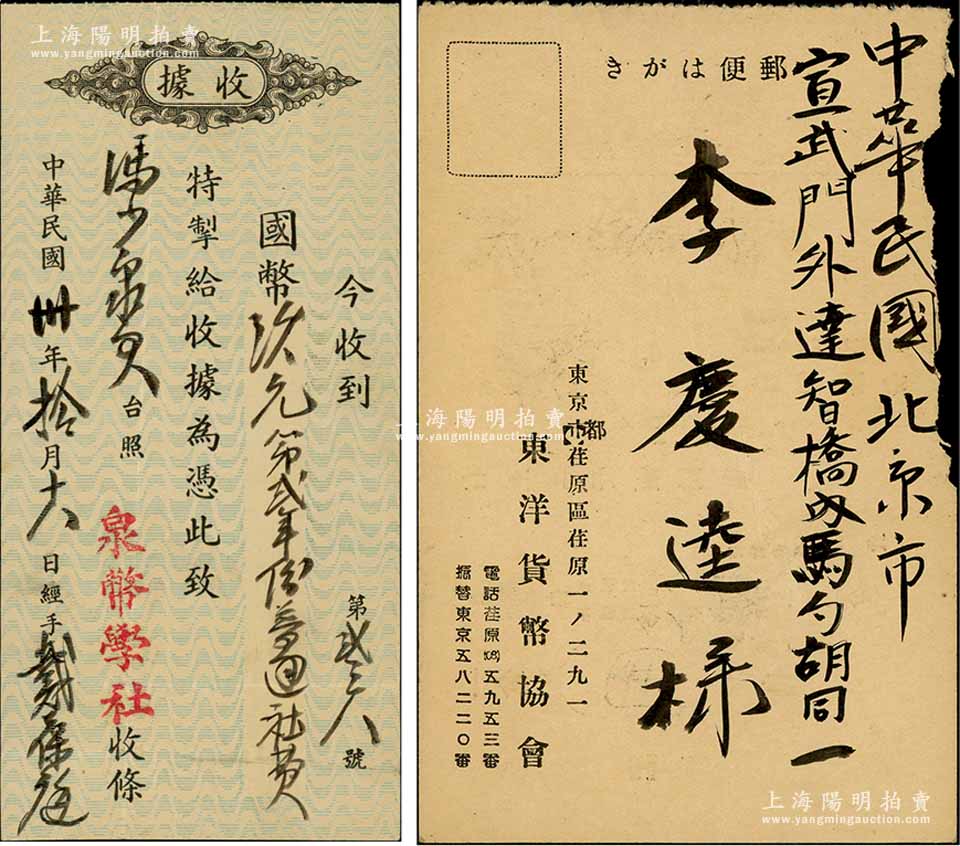 上海陽明拍賣
www.yangmingauction.com
收據
今收到
第弍三八號
國幣玖元第弍年份普通社費
特掣給收據為憑此致
馮少泉先生台照
泉幣學社收條
中華民國卅年拾月十八日經手戴葆庭
上海陽明拍賣
www.yangmingauction.com
郵便はがき
中華民國北京市
宣武門外達智橋內馬勺胡同一
李慶逵様
東京都荏原區荏原一ノ二九一
東洋貨幣協會
電話荏原(08)五九五三番
振替東京五八二二〇番
上海陽明拍賣
www.yangmingauction.com